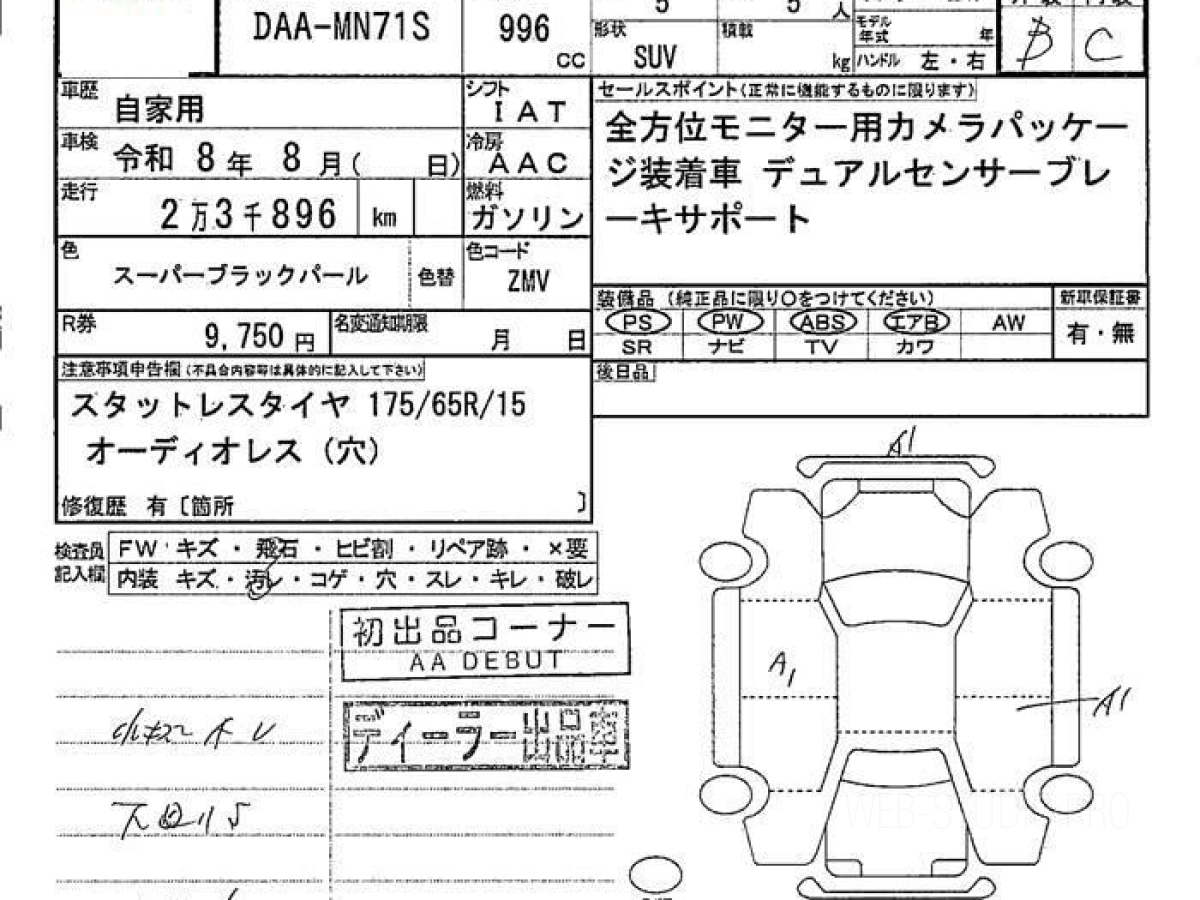 DAA-MN71S
996
cc
5
5
人
形状
SUV
積載
kg
モデル
年式
年
ハンドル 左・右
B
C
車歴
自家用
シフト
IAT
車検
令和 8年 8月( 日)
冷房
AAC
走行
2万3千896 km
燃料
ガソリン
色
スーパーブラックパール
色替
色コード
ZMV
R券
9,750円
名変通知期限
月 日
セールスポイント(正常に機能するものに限ります)
全方位モニター用カメラパッケー
ジ装着車 デュアルセンサーブレ
ーキサポート
装備品 (純正品に限り○をつけてください)
新車保証書
PS PW ABS エアB AW
SR ナビ TV カワ
有・無
後日品
注意事項申告欄(不具合内容等は具体的に記入して下さい)
スタットレスタイヤ 175/65R/15
オーディオレス(穴)
修復歴 有〔箇所 〕
検査員
記入欄
FW キズ・飛石・ヒビ割・リペア跡・×要
内装 キズ・汚レ・コゲ・穴・スレ・キレ・破レ
初出品コーナー
AA DEBUT
ディーラー出品車
A1
A1
A1